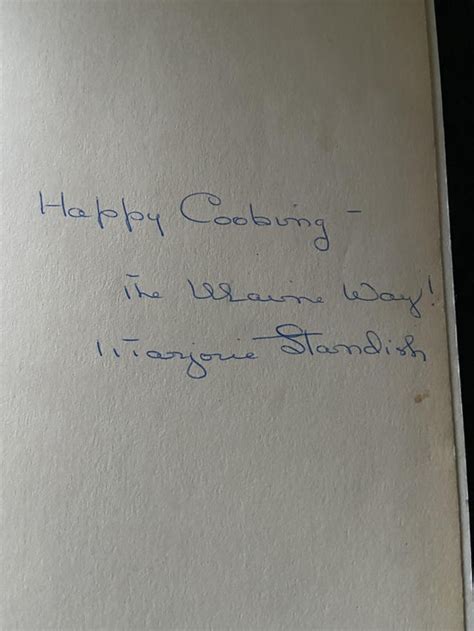 Happy Cooking -
The Maine Way!
Marjorie Standish